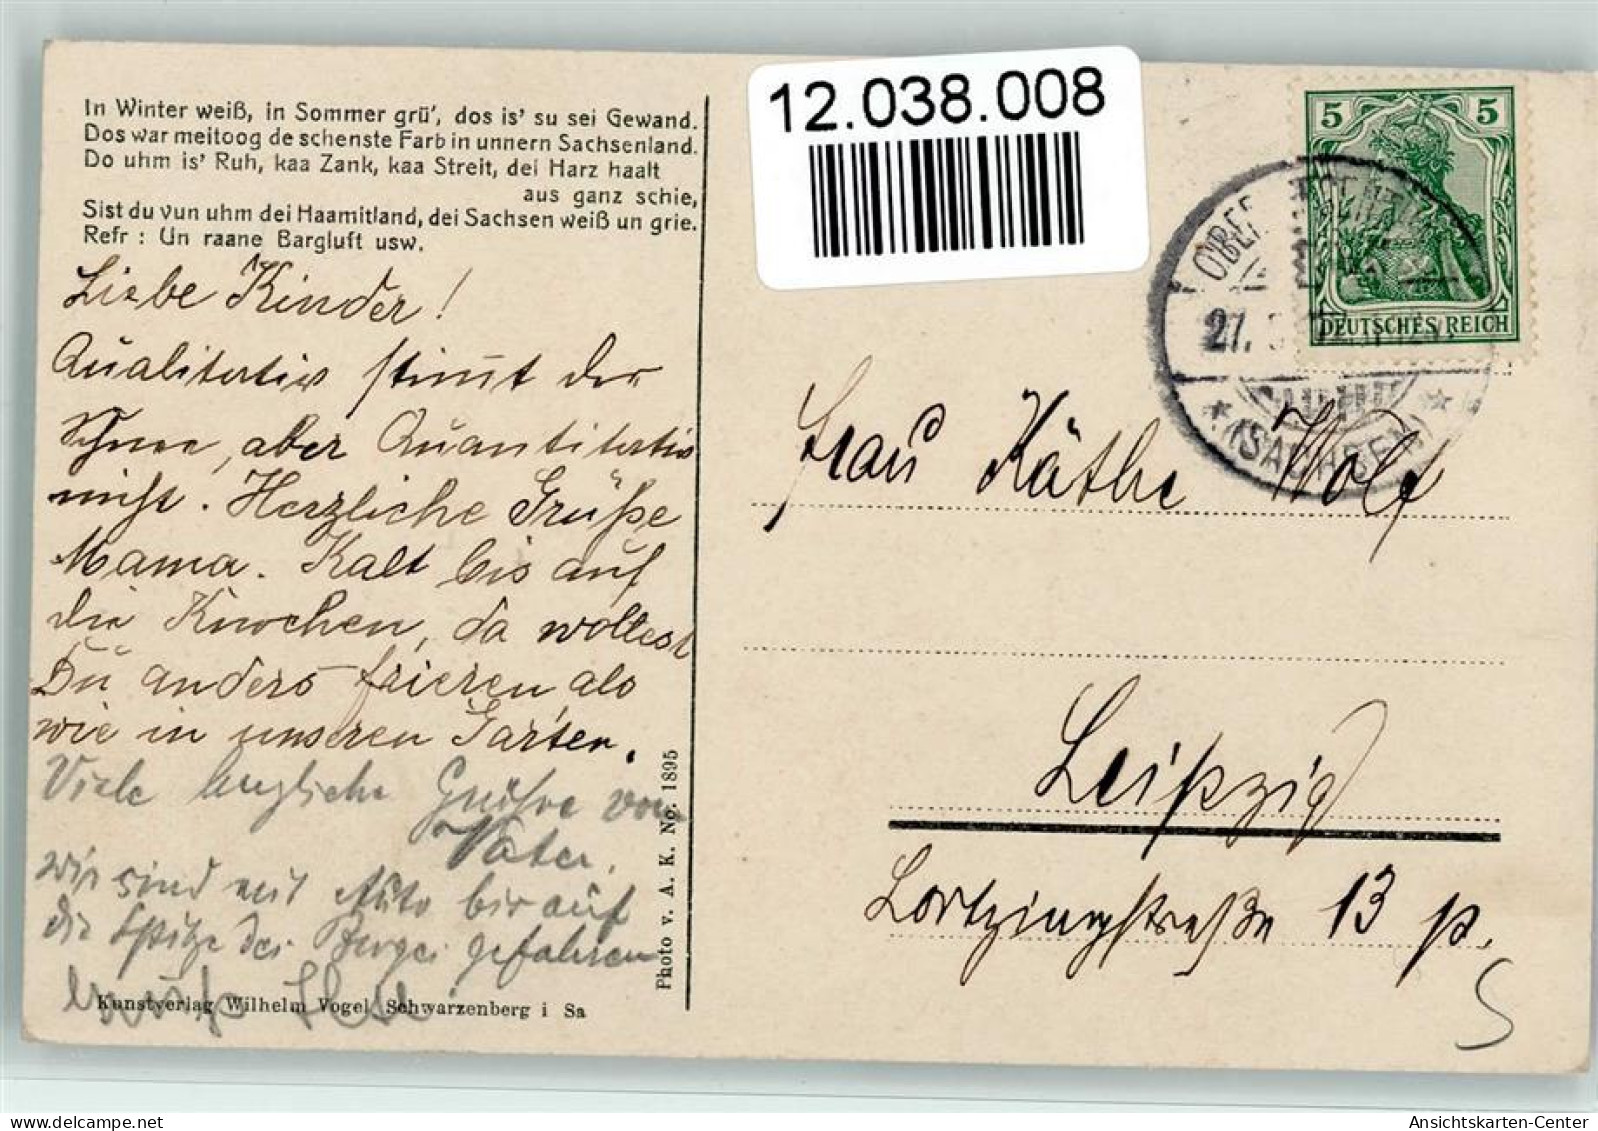 In Winter weiß, in Sommer grü', dos is' su sei Gewand.
Dos war meitoog de schenste Farb in unnern Sachsenland.
Do uhm is' Ruh, kaa Zank, kaa Streit, dei Harz haalt
aus ganz schie,
Sist du vun uhm dei Haamitland, dei Sachsen weiß un grie.
Refr : Un raane Bargluft usw.
Liebe Kinder!
Qualitativ stimmt der
Schnee, aber Quantitativ
nicht. Herzliche Grüße
Mama. Kalt bis auf
die Knochen, da wolltest
Du anders frieren, als
wie in unseren Garten.
Viele herzliche Grüße von
Vater.
wir sind mit Auto bis auf
die Spitze des Berges gefahren
Kunstverlag Wilhelm Vogel Schwarzenberg i Sa
Photo v. A. K. No. 1895
12.038.008
5 5
DEUTSCHES REICH
OBER
27.
(SACHSEN)
Frau Käthe Wolf
Leipzig
Lortzingstraße 13 p.
Ansichtskarten-Center